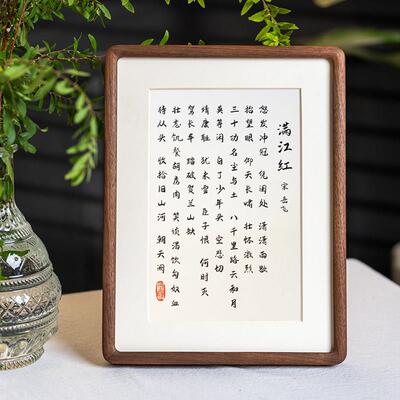 满江红
宋 岳飞
怒发冲冠 凭阑处 潇潇雨歇
抬望眼 仰天长啸 壮怀激烈
三十功名尘与土 八千里路云和月
莫等闲 白了少年头 空悲切
靖康耻 犹未雪 臣子恨 何时灭
驾长车 踏破贺兰山缺
壮志饥餐胡虏肉 笑谈渴饮匈奴血
待从头 收拾旧山河 朝天阙